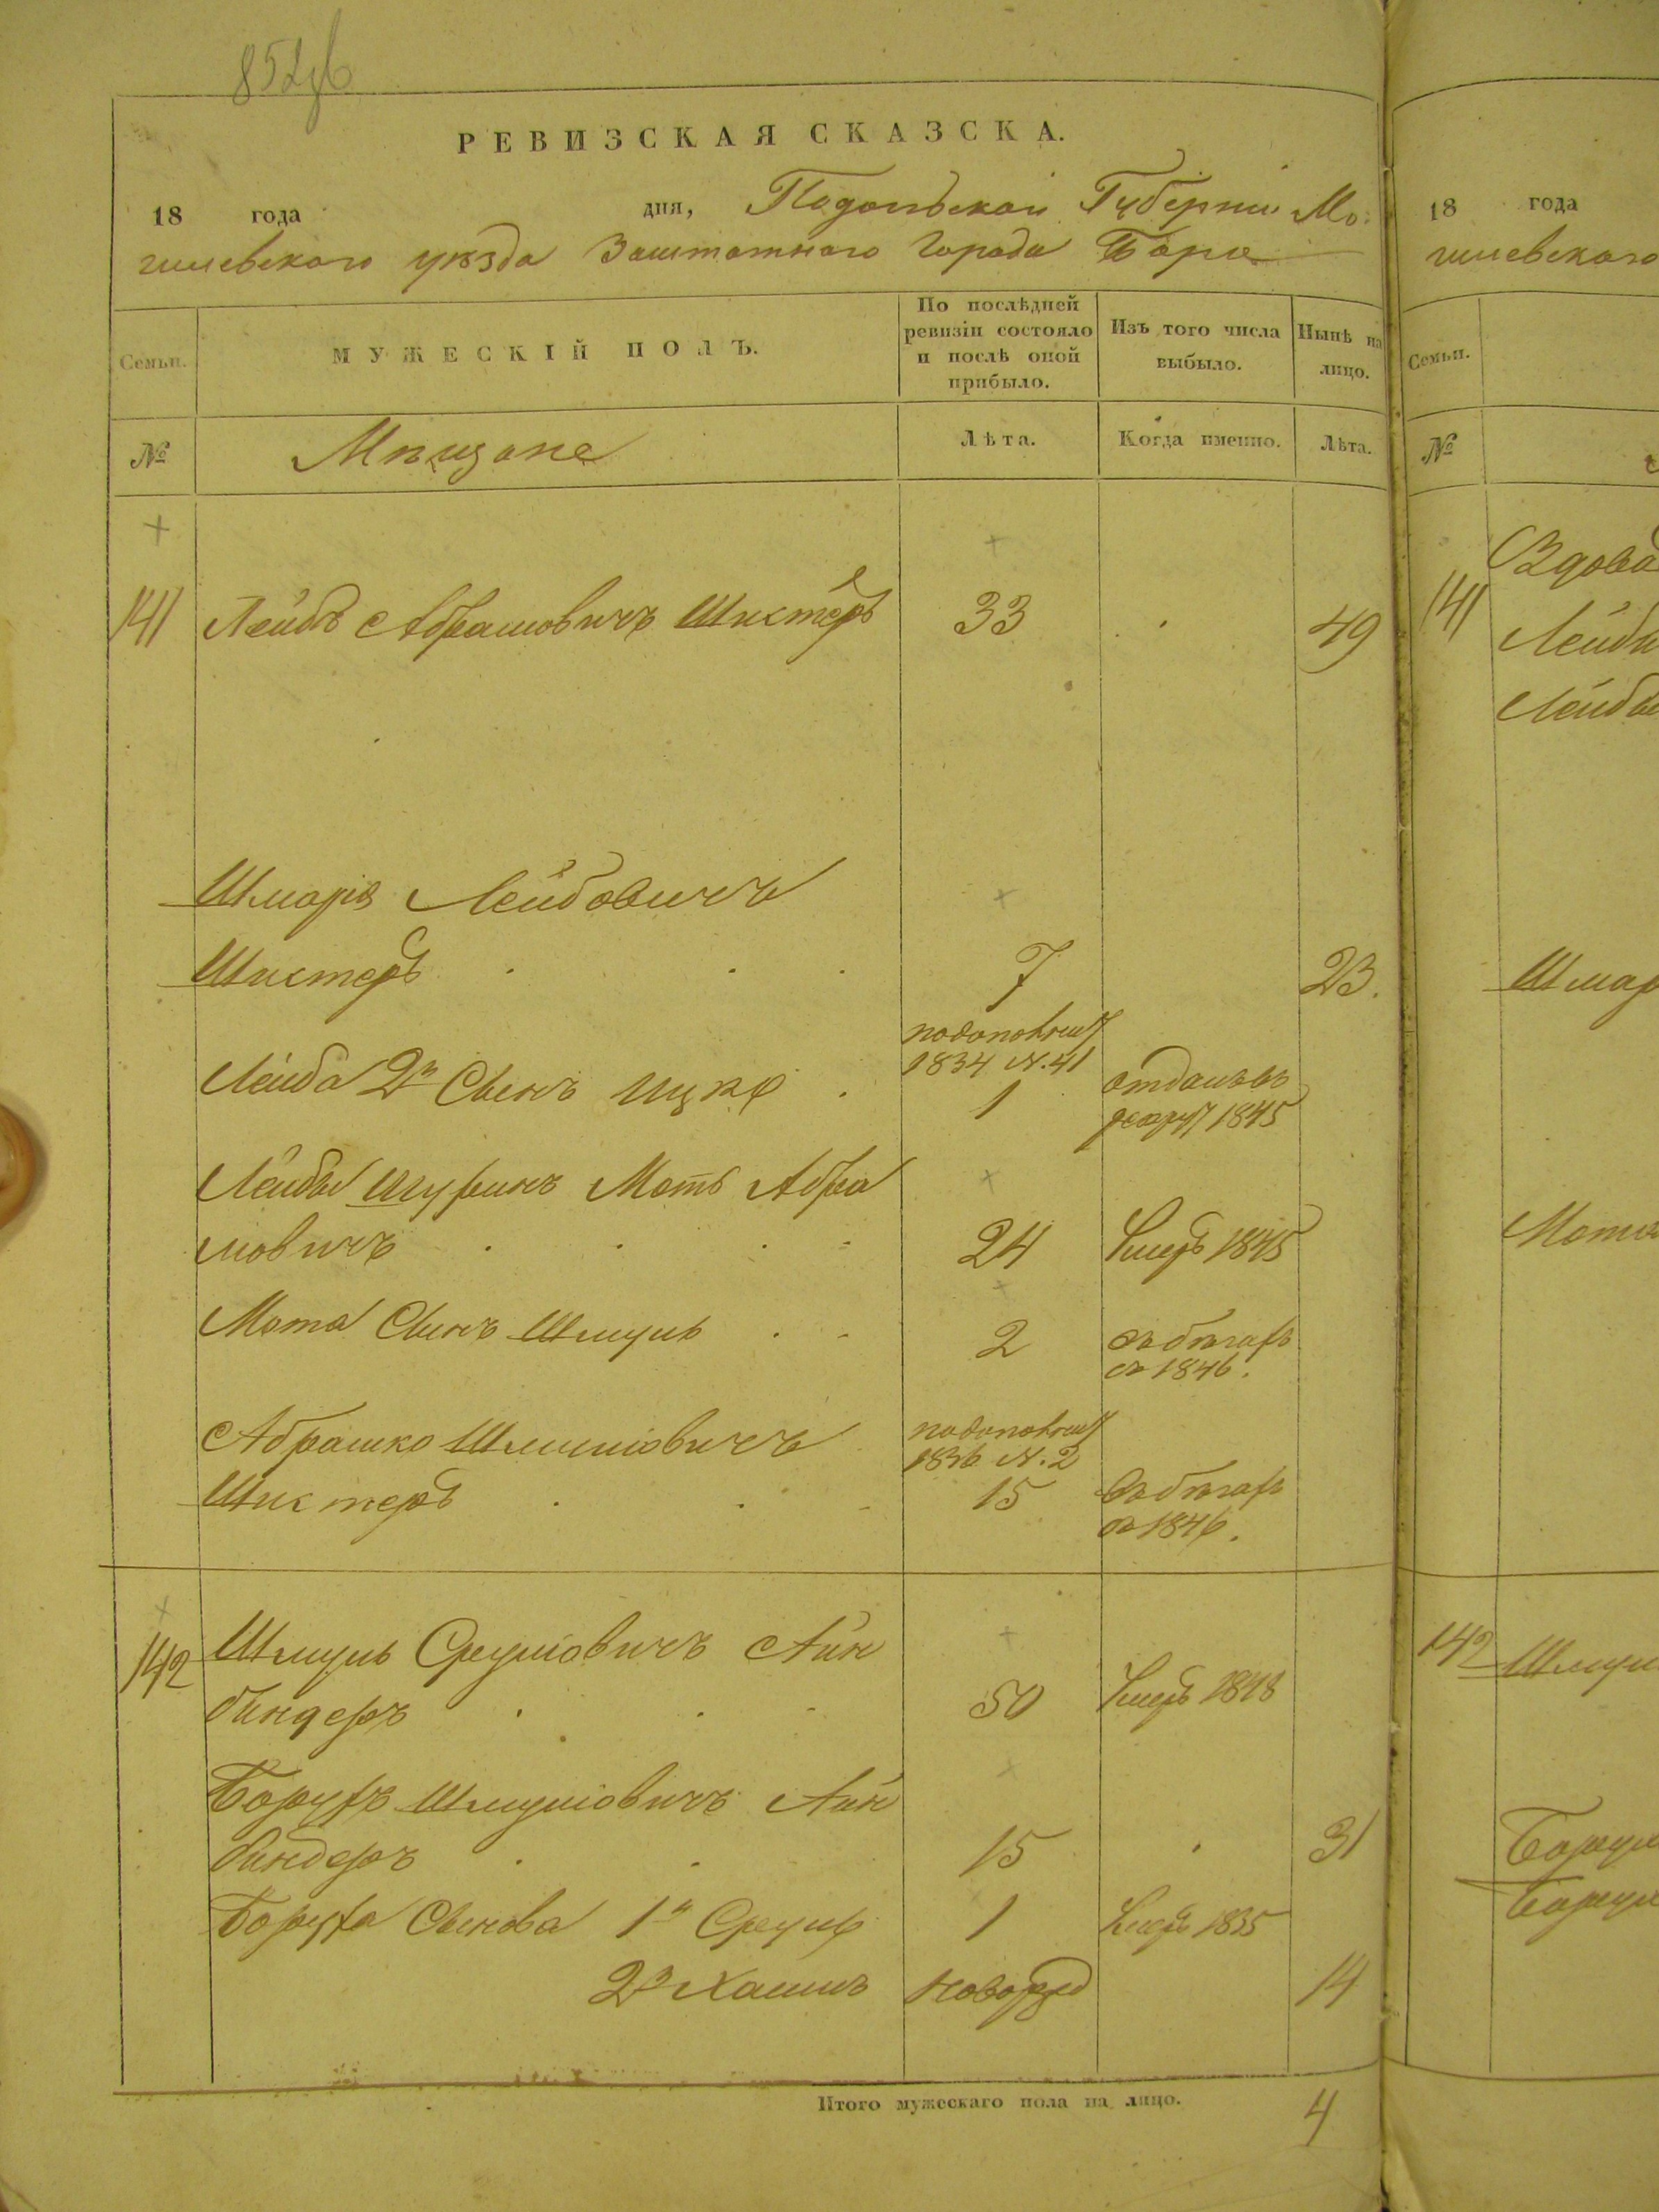 РЕВИЗСКАЯ СКАЗСКА.
18 года дня, Подольской Губерніи Мо-
гилевского уѣзда Заштатного Города Бара
Семьи.
МУЖЕСКІЙ ПОЛЪ.
По послѣдней
ревизіи состояло
и послѣ оной
прибыло.
Изъ того числа
выбыло.
Нынѣ на
лицо.
№
Мѣщане
Лѣта.
Когда именно.
Лѣта.
141 Лейбъ Абрамовичъ Шистеръ 33 49
Шмарія Лейбовичъ
Шистеръ 7 23.
1834 N. 41
Лейба 2й Сынъ Ицко 1 отданъ въ
1845
Лейбы Шуринъ Мотъ Абра
мовичъ 24 Умеръ 1845
Мота Сынъ Шмуль 2 въ бѣгахъ
съ 1846.
Абрашко Шлиомовичъ
1836 N. 2
Шистеръ 15 въ бѣгахъ
съ 1846.
142 Шмуль Сруліовичъ Айн
биндеръ 50 Умеръ 1848
Борухъ Шмуліовичъ Айн
биндеръ 15 31
Боруха Сынова 1й Сруль 1 Умеръ 1835
2й Хаимъ Новорожд 14
Итого мужескаго пола на лицо. 4
18 года
гилевского
Семьи.
№
Вдова
141 Лейбы
Лейбы
Шмар
142 Шмул